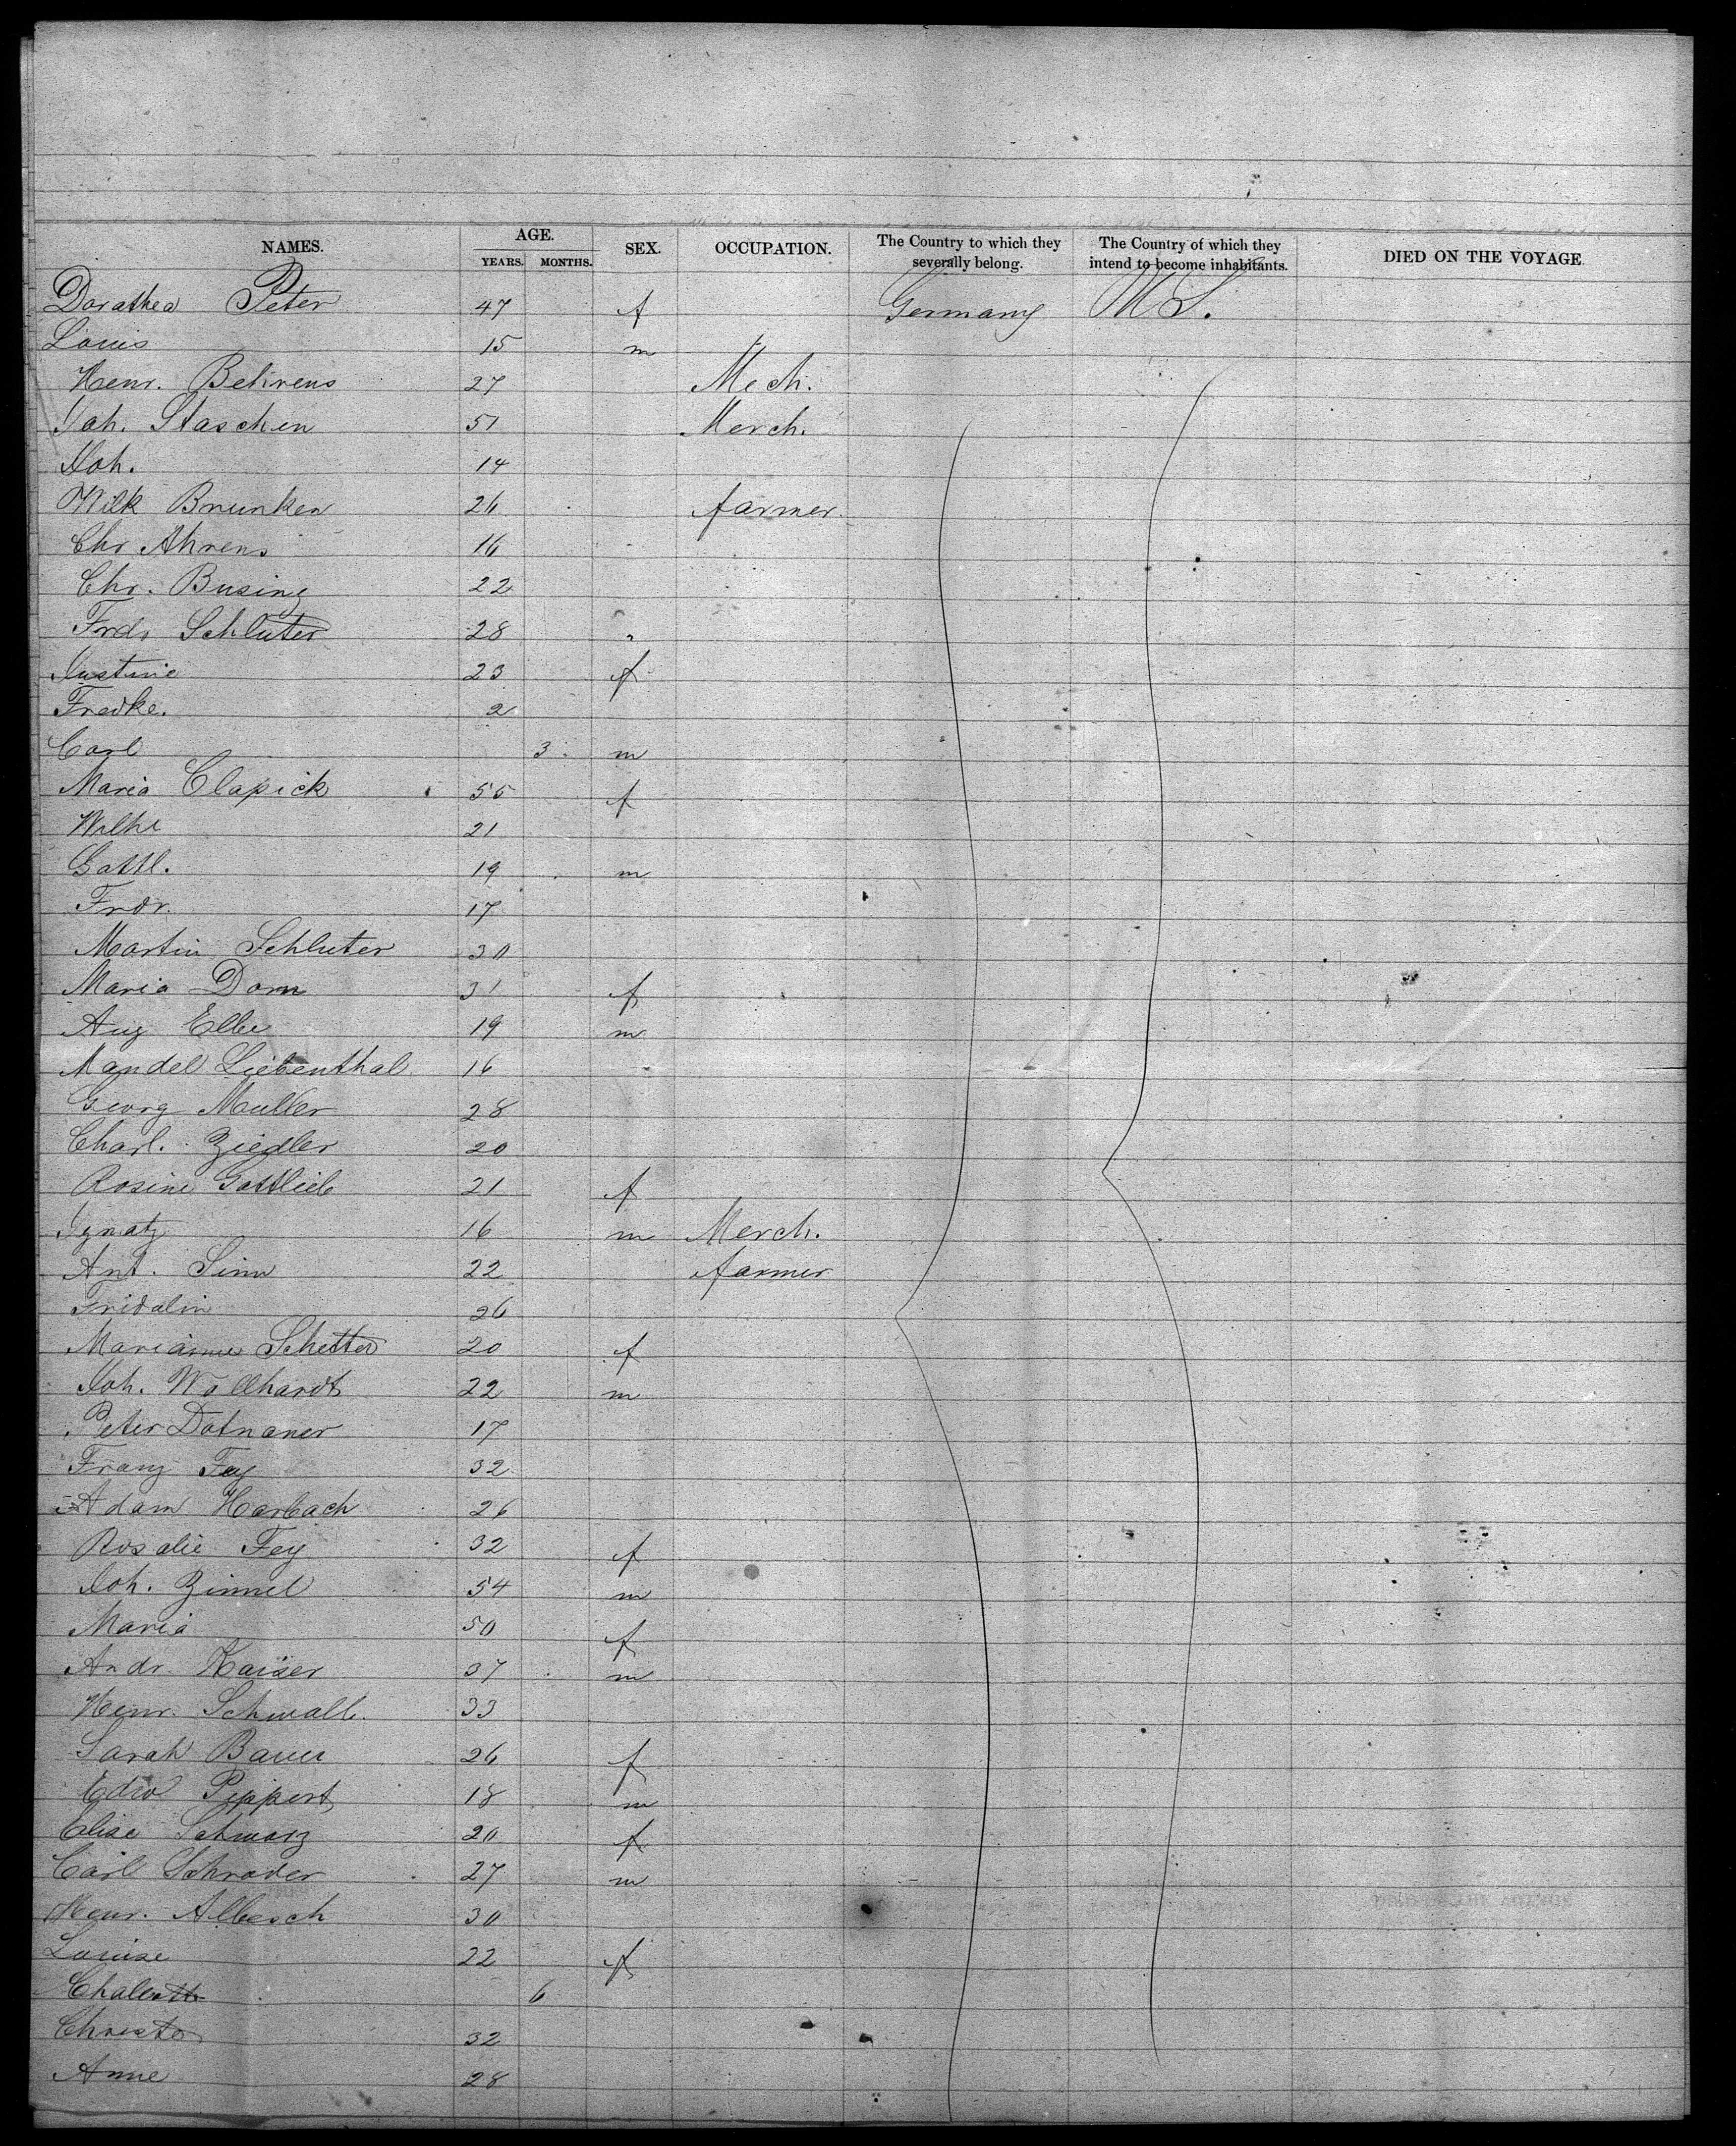 NAMES. AGE. YEARS. MONTHS. SEX. OCCUPATION. The Country to which they severally belong. The Country of which they intend to become inhabitants. DIED ON THE VOYAGE
Dorathea Peter 47 f Germany U S.
Louis 15 m
Henr. Behrens 27 Mech.
Joh. Staschen 51 Merch.
Joh. 14
Wilk Brunken 26 farmer
Chr Ahrens 16
Chr. Busing 22
Frdr Schluter 28
Justine 23 f
Fredke. 2
Carl 3 m
Maria Clapick 55 f
Wilhe 21
Gottl. 19 m
Frdr. 17
Martin Schluter 30
Maria Dorn 31 f
Aug Elbe 19 m
Mandel Liebenthal 16
Georg Muller 28
Charl. Ziedler 20
Rosine Gottlieb 21 f
Ignatz 16 m Merch.
Ant. Sinn 22 farmer
Fridalin 26
Marianne Schetter 20 f
Joh. Wollhardt 22 m
Peter Dotnaner 17
Franz Fey 32
Adam Harbach 26
Rosalie Fey 32 f
Joh. Zimmel 54 m
Maria 50 f
Andr. Kaiser 37 m
Henr. Schwalb. 33
Sarah Bauer 26 f
Edw Peppert 18 m
Elise Schwarz 20 f
Carl Schrader 27 m
Henr. Albesch 30
Louise 22 f
6
Christo 32
Anne 28